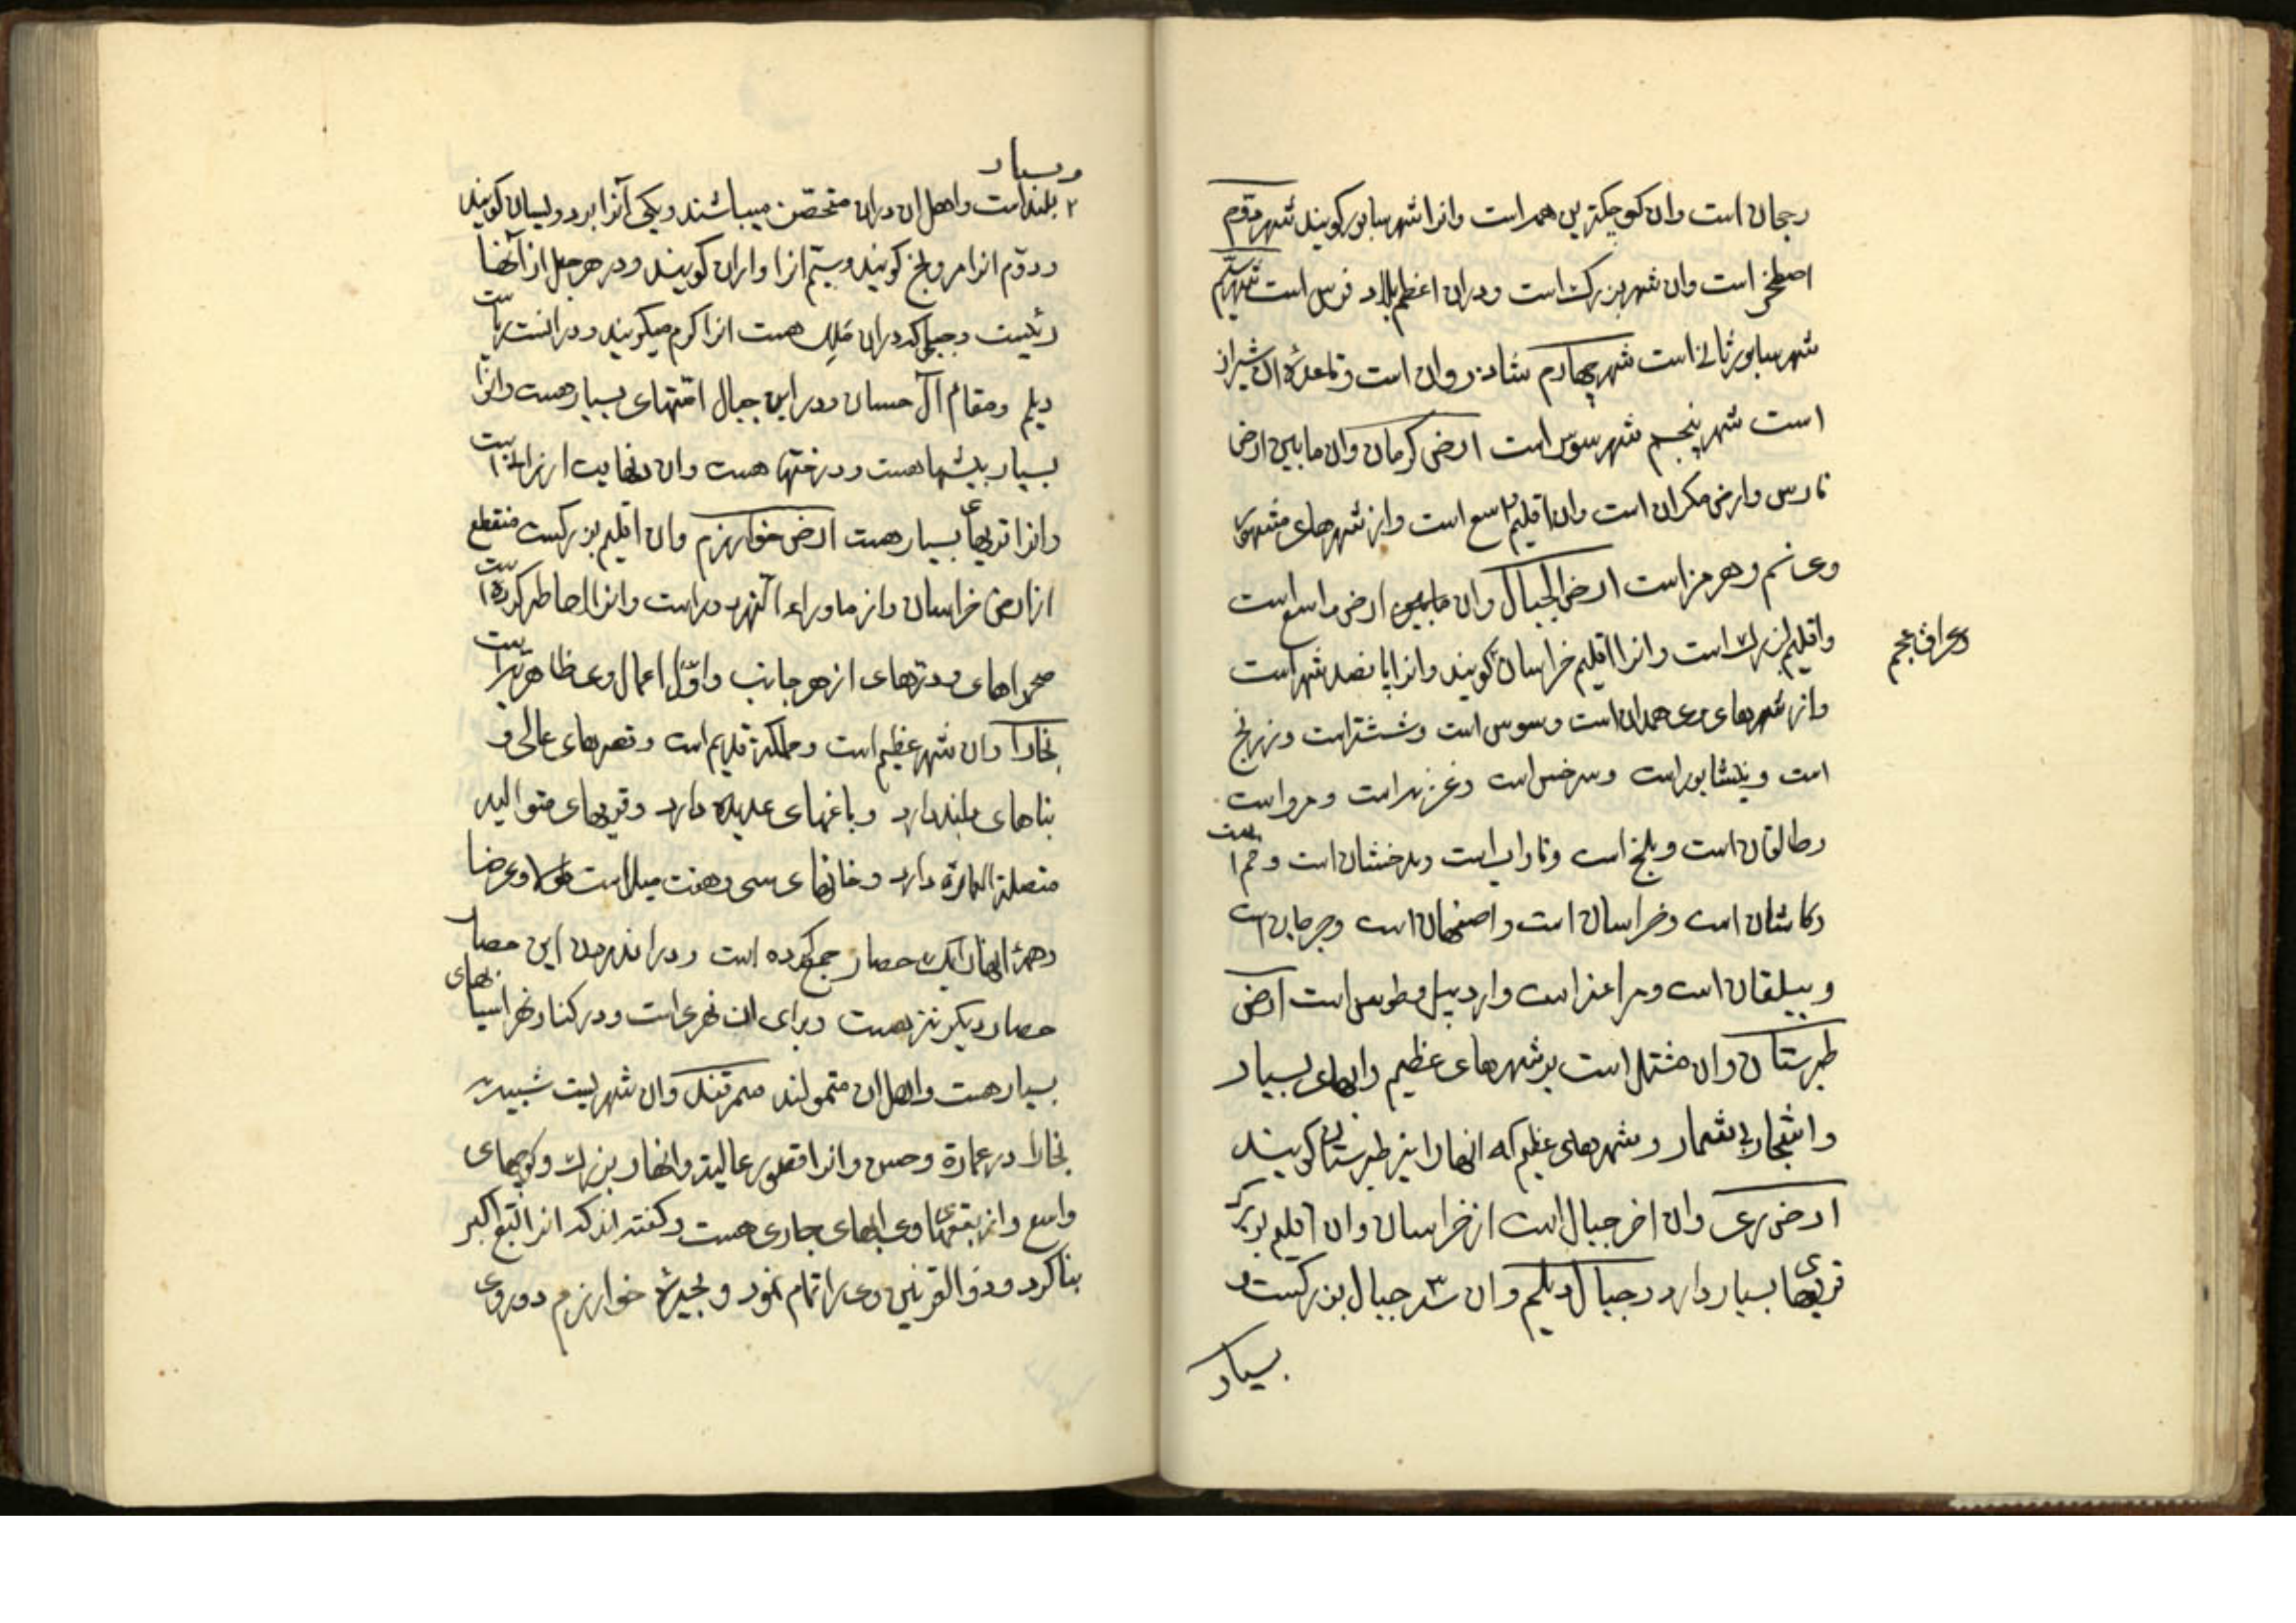 رجان است وان کوچکترین همه است وانرا شهر سابور کویند شهر دوم
اصطخر است وان شهر بزرک است ودران اعظم بلاد فرس است شهر سیم
شهر سابور ثانی است شهر چهارم شاذروان است وقاعدۀ ان شیراز
است شهر پنجم شهر سوس است ارض کرمان وان مابین ارض
فارس وارض مکران است وان اقلیم واسع است واز شهرهای مشهور
وی نم وهرمز است ارض الجبال وان ارض واسع است
وعراق عجم
واقلیم بزرک است وانرا اقلیم خراسان کویند وانرا پانصد شهر است
واز شهرهای وی همدان است وسوس است وششتر است وزرنج
است ونیشابور است وسرخس است وغزنه است ومرو است
وطالقان است وبلخ است وفاراب است وبدخشان است وقم است
وکاشان است وخراسان است واصفهان است وجرجان است
وبیلقان است ومراغه است واردبیل وطوس است ارض
طبرستان وان مشتمل است بر شهرهای عظیم وابهای بسیار
واشجار بی شمار وشهرهای عظیم که انها را نیز طبرستان کویند
ارض ری وان اخر جبال است از خراسان وان اقلیم بزرک
قریهای بسیار دارد وجبال دیلم وان سه ۳ جبال بزرکست و
بسیار
وبسیار
۲ بلند است واهل ان دران متحصن میباشند ویکی آنرا بردولسیان کویند
ودوم انرا مرولج کویند وسیم انرا واران کویند ودر هر جبل از آنها
رئیست وجبلی که دران ملک هست انرا کرم میکویند ودرانست ریاست
دیلم ومقام آل حسان ودر این جبال امتهای بسیار هست وانرا
بسیار بیشها هست ودرختها هست وان
وانرا قریهای بسیار هست ارض خوارزم وان اقلیم بزرکست منقطع
از ارض خراسان واز ماوراء النهر دور است وانرا احاطه کرده است
صحراهای ودزهای از هر جانب واول اعمال وی ظاهریه است
بخارا وان شهر عظیم است ومملکة قدیم است وقصرهای عالی و
بناهای بلند دارد وباغهای عدیده دارد وقریهای متوالیه
متصلة العمارة دارد وخانهای سی وهفت میل است طولا وعرضا
وهمۀ انها را یک حصار جمع کرده است ودر اندرون این حصار
حصار دیکر نیز هست وبرای ان نهری است ودر کنار نهر اسیابهای
بسیار هست واهل ان متمولند سمرقند وان شهریست شبیه
بخارا در عمارة وحسن وانرا قصور عالیه وانهار بزرک وکوچهای
واسع وانرا وی ابهای جاری هست وکفته اند که انرا تبع اکبر
بنا کرد وذو القرنین وی را تمام نمود وبحیرۀ خوارزم دوروی